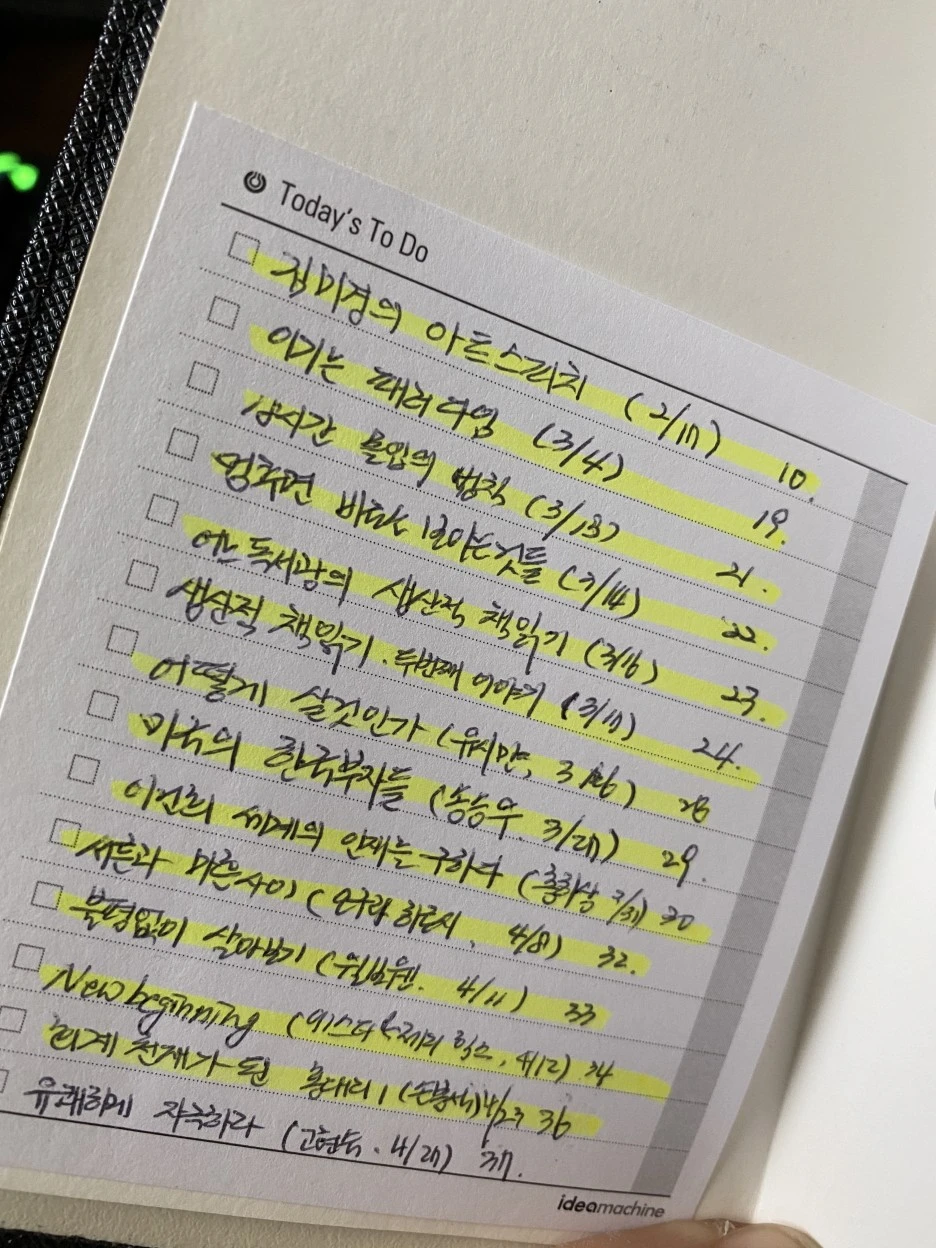 Today's To Do
김미경의 아트스피치 (2/17) 10.
이기는 패러다임 (3/4) 19.
몰입의 법칙 (3/13) 21.
멈추면 비로소 보이는것들 (3/14) 22.
어느 독서광의 생산적 책읽기 (3/16) 23.
생산적 책읽기. 두번째 이야기 (3/17) 24.
어떻게 살것인가 (유시민, 3/26) 28
한국부자들 (3/27) 29.
이건희 세계의 인재를 구하다 (홍하상 3/31) 30
서른과 마흔사이 (오구라 히로시. 4/8) 32.
불평없이 살아보기 (윌보웬. 4/11) 33
New beginning (에스더&제리 힉스, 4/12) 34
회계 천재가 된 홍대리 1 (손봉석) 4/23 36
유쾌하게 자극하라 (고현숙. 4/27) 37.
ideamachine